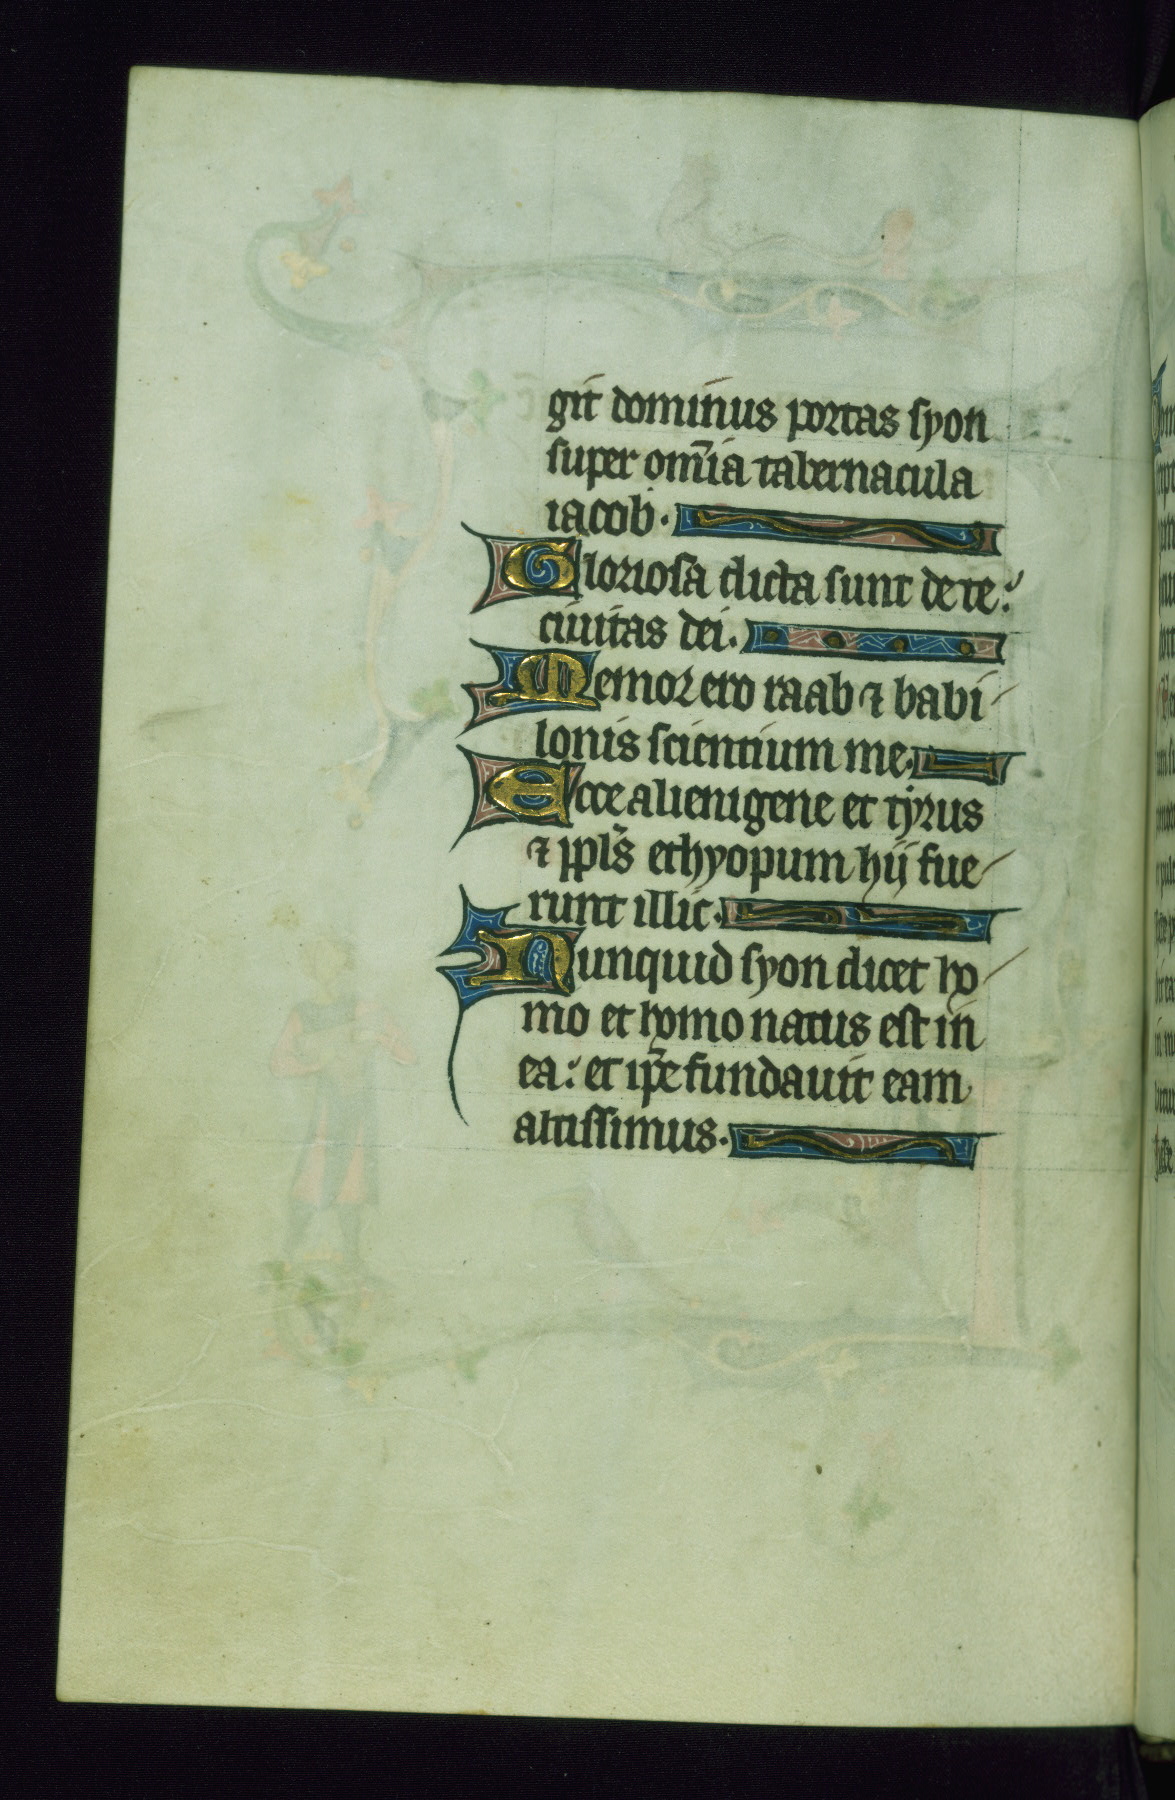 git dominus portas syon
super om̄ia tabernacula
iacob.
Gloriosa dicta sunt de te:
ciuitas dei.
Memor ero raab ⁊ babi
lonis scientium me.
Ecce alienigene et tyrus
⁊ ppl̄s ethyopum hij fue
runt illic.
Nunquid syon dicet ho
mo et homo natus est in
ea: et ip̄e fundauit eam
altissimus.